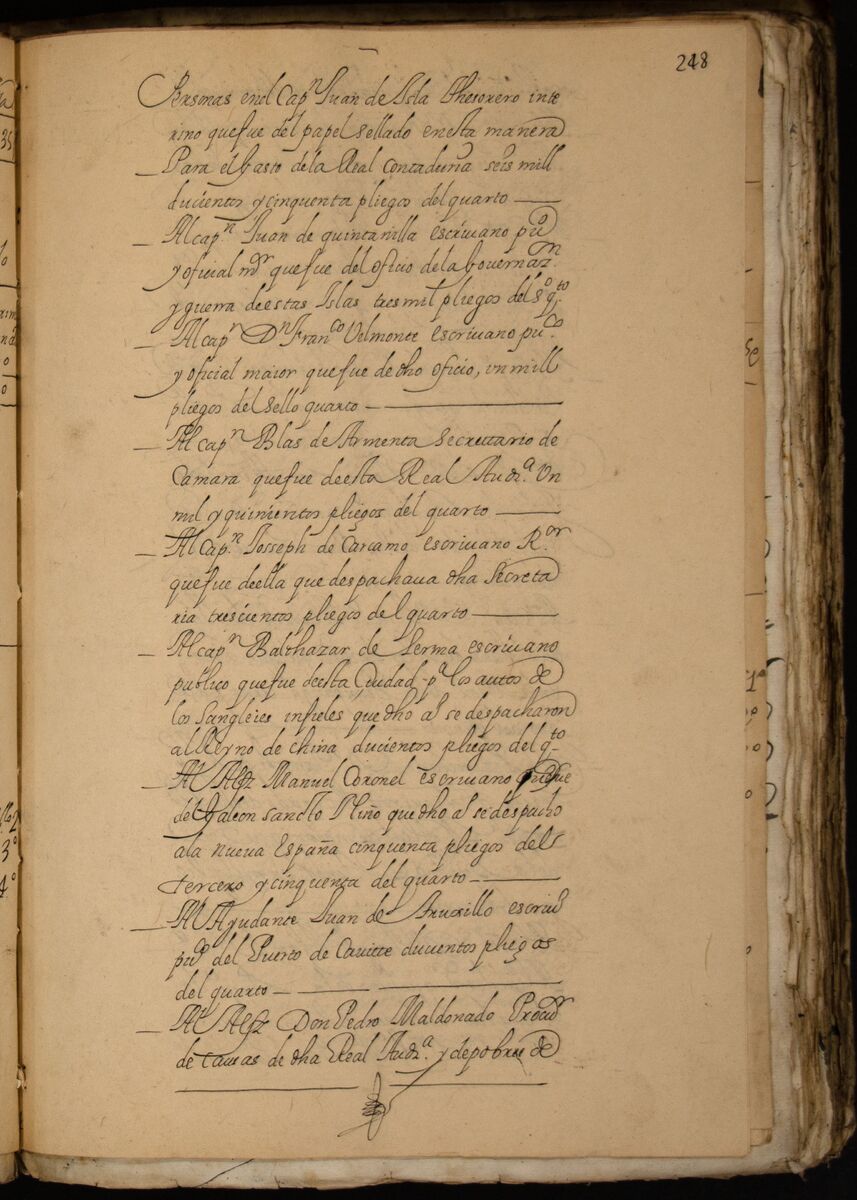 248
Personas en el Capⁿ Juan de Isla thesorero inte
rino que fue del papel sellado en esta manera
Para el gasto de la Real Contaduria seis mill
ducientos y cinquenta pliegos del quarto
Al capⁿ Juan de quintanilla escriuano puᶜᵒ
y oficial mᵒʳ que fue del oficio de la Gouernazᵒⁿ
y guerra de estas Islas tres mil pliegos del sᵒ qᵗᵒ
Al capⁿ Dⁿ Franᶜᵒ Velmonte escriuano puᶜᵒ
y oficial maior que fue de dho oficio, un mill
pliegos del sello quarto
Al capⁿ Blas de Armenta secretario de
Camara que fue de esta Real Audᵃ Un
mil y quinientos pliegos del quarto
Al Capⁿ Josseph de Carcamo escriuano Rᵒʳ
que fue de ella que despachaua dha Secreta
ria trescientos pliegos del quarto
Al capⁿ Balthazar de Lerma escriuano
publico que fue de esta Ciudad pᵃ los autos de
los Sangleies infieles que dho al se despacharon
al Reyno de china ducientos pliegos del qᵗᵒ
Al Alfz Manuel Coronel escriuano que fue
del Galeon sancto Niño que dho al se despacho
a la nueua España cinquenta pliegos del
tercero y cinquenta del quarto
Al Ayudante Juan de Truxillo escriuᵒ
puᶜᵒ del Puerto de Cauitte ducientos pliegos
del quarto
Al Alfz Don Pedro Maldonado Procuᵈʳ
de causas de dha Real Audᵃ y de pobres de